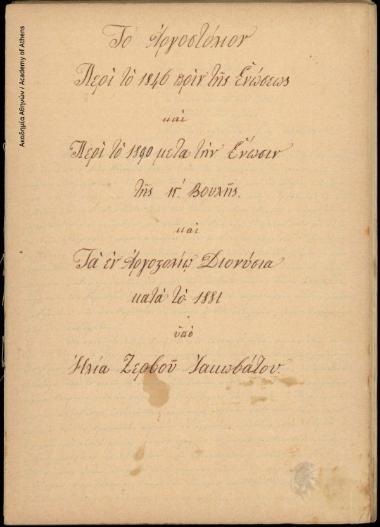 Το Αργοστόλιον
Περὶ τὸ 1846 πρὶν τῆς Ἑνώσεως
καὶ
Περὶ τὸ 1890 μετα τὴν Ἕνωσιν
τῆς Βουλῆς.
καὶ
Τὰ ἐν Ἀργοστολίῳ Διονύσια
κατὰ τὸ 1881
ὑπὸ
Ἠλία Ζερβοῦ Ἰακωβάτου.
Ακαδημία Αθηνών / Academy of Athens